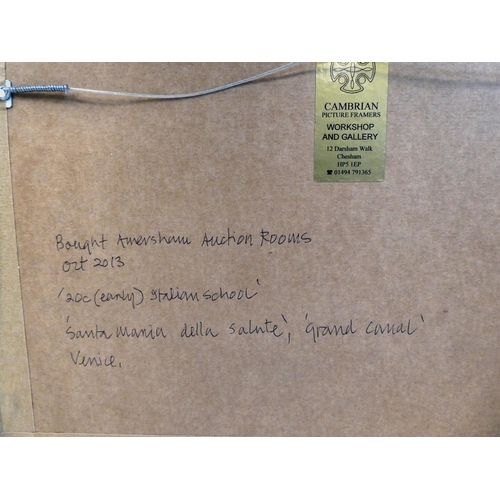 CAMBRIAN
PICTURE FRAMERS
WORKSHOP
AND GALLERY
12 Darsham Walk
Chesham
HP5 1EP
☎ 01494 791365
Bought Amersham Auction Rooms
Oct 2013
'20c (early) Italian School'
'Santa Maria della Salute', 'Grand Canal'
Venice.